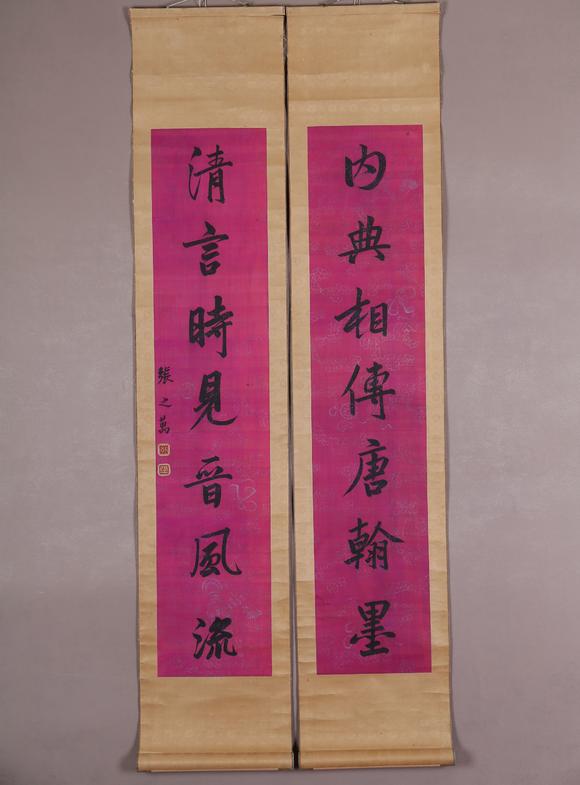 内典相傳唐翰墨
清言時見晉風流
張之萬